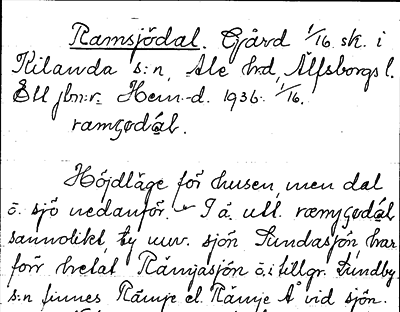 Ramsjödal. Gård 1/16 sk. i
Kilanda s:n, Ale hrd, Älfsborgs l.
Ell jbn:r. Hem.-d. 1936. 1/16.
ramʃødál.
Höjdläge för husen, men dal
ö. sjö nedanför. I ä. utt.
sannolikt, ty uuv. sjön Sundasjön, har
förr hetat Rämjasjön ö. i tillgr. Sundby
s:n finnes Rämje el. Rämje Å vid sjön.